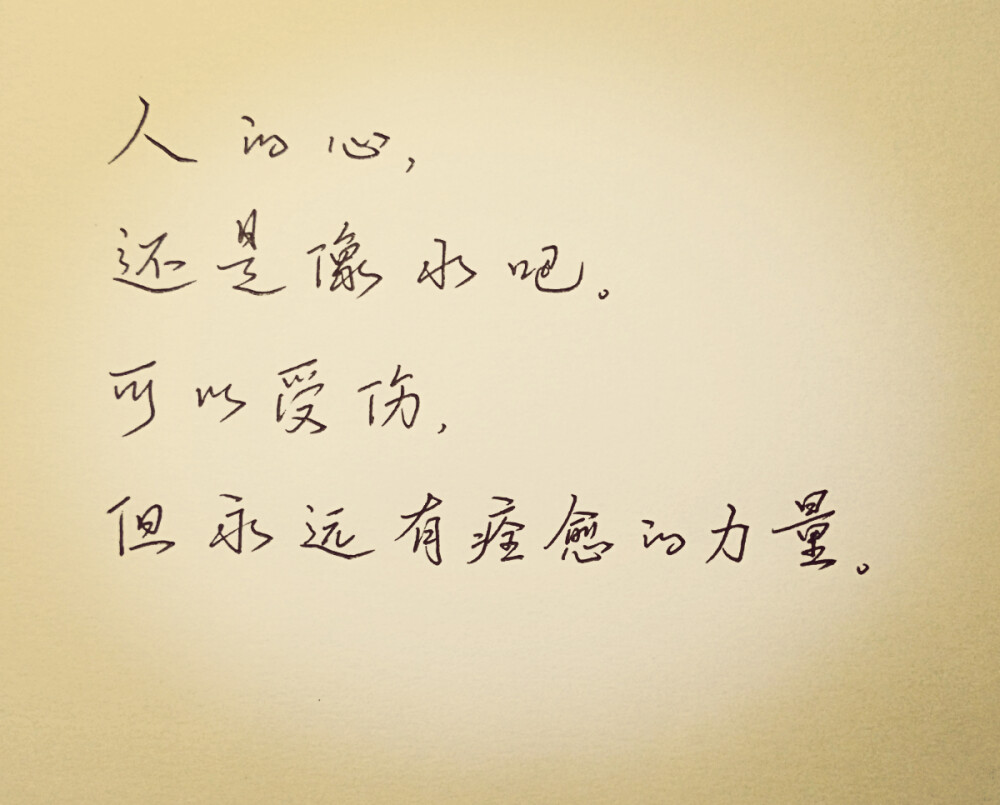 人的心,
还是像水吧。
可以受伤,
但永远有痊愈的力量。